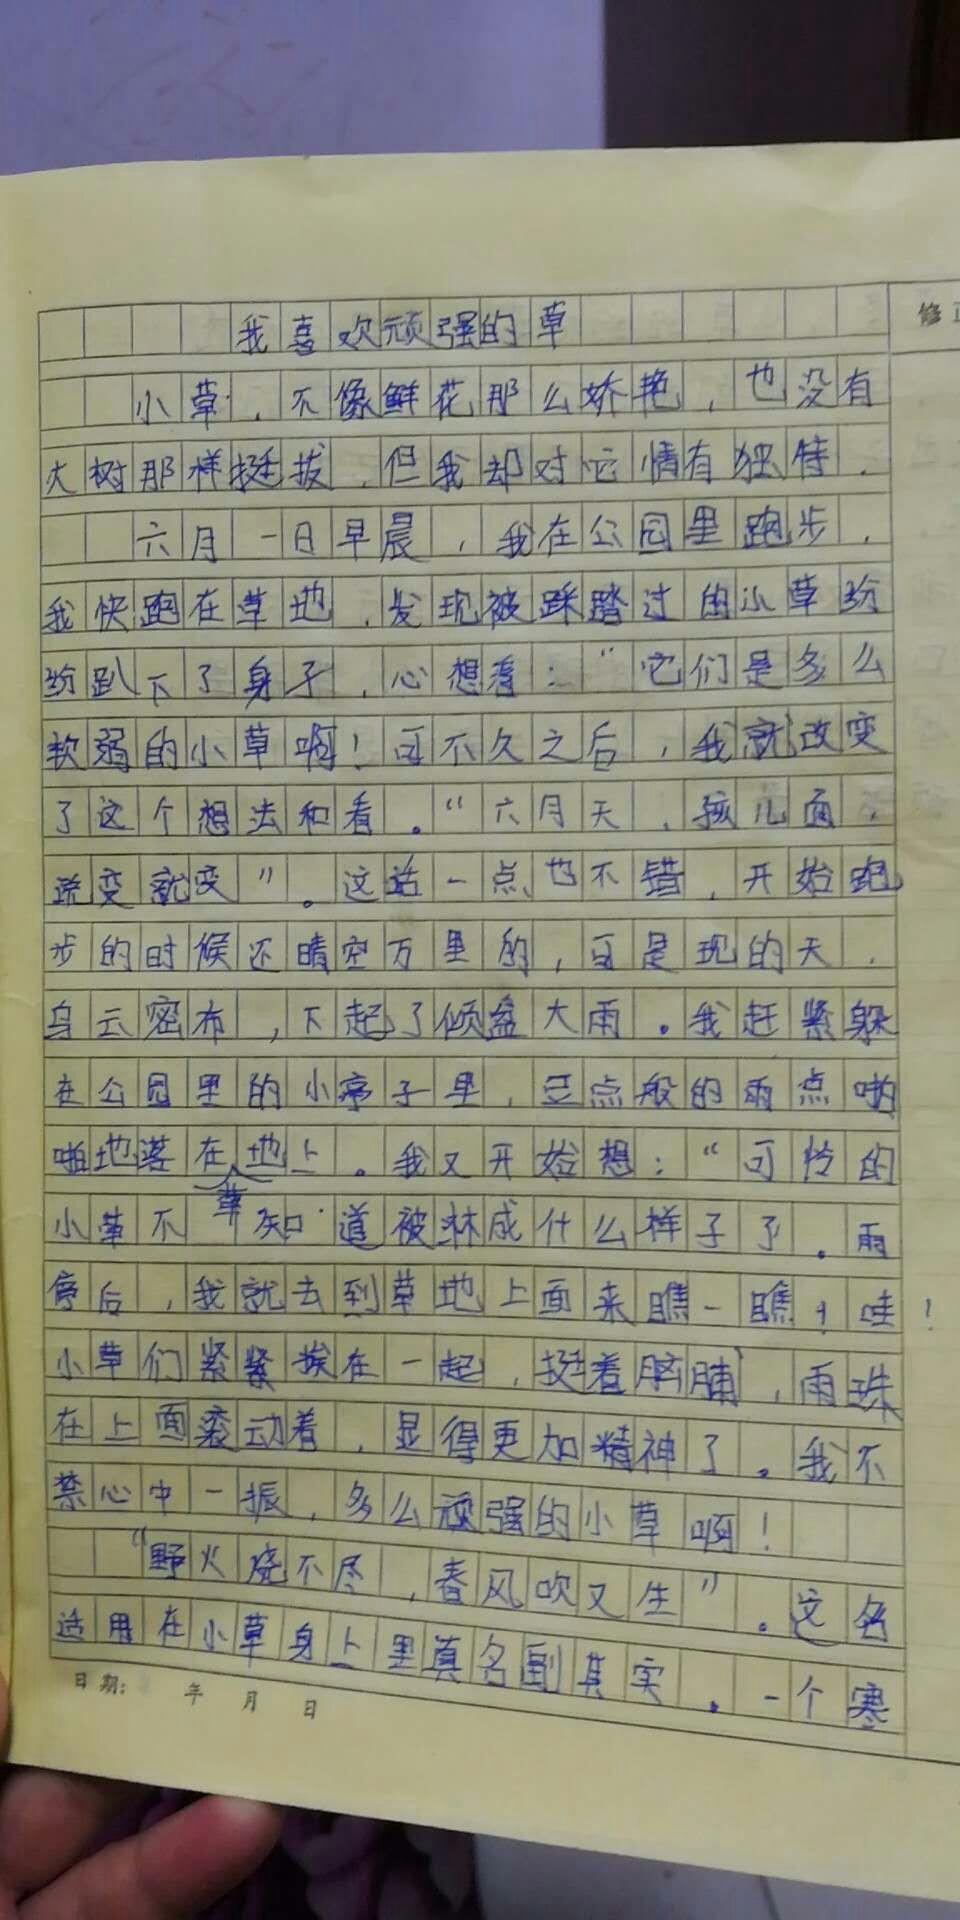 我喜欢顽强的草
修正
小草，不像鲜花那么娇艳，也没有
大树那样挺拔，但我却对它情有独特，
六月一日早晨，我在公园里跑步，
我快跑在草地，发现被踩踏过的小草纷
纷趴下了身子，心想着：“它们是多么
软弱的小草啊！可不久之后，我就改变
了这个想法和看。“六月天，孩儿面，
说变就变”。这话一点也不错，开始跑
步的时候还晴空万里的，可是现的天，
乌云密布，下起了倾盆大雨。我赶紧躲
在公园里的小亭子里，豆点般的雨点啪
啪地落在草地上。我又开始想：“可怜的
小草不知道被淋成什么样子了。雨
停后，我就去到草地上面来瞧一瞧，哇！
小草们紧紧挨在一起，挺着胸脯，雨珠
在上面滚动着，显得更加精神了。我不
禁心中一振，多么顽强的小草啊！
“野火烧不尽，春风吹又生”。这名
适用在小草身上里真名副其实。一个寒
日期： 年 月 日